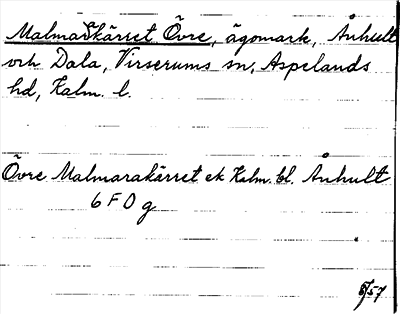 Malmarkärret Övre, ägomark, Ånhult
och Dala, Virserums sn, Aspelands
hd, Kalm. l.
Övre Malmarakärret ek Kalm. bl. Ånhult
6 F 0 g
/57